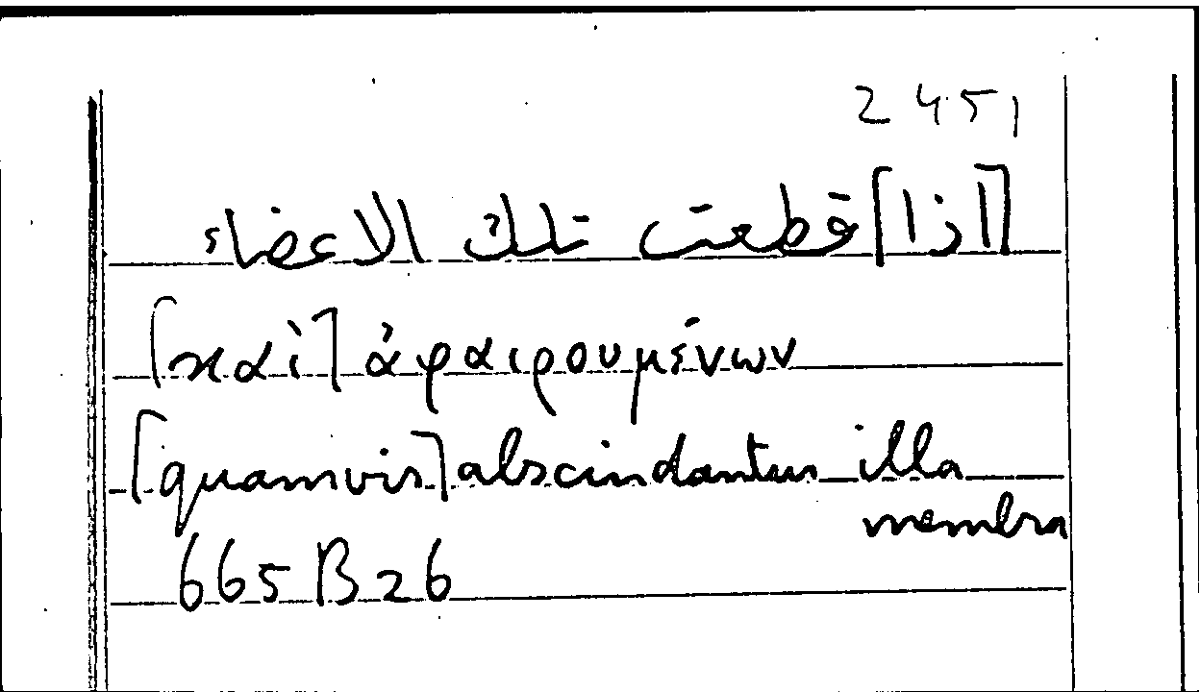 2451
[اذا] قطعت تلك الاعضاء
[καὶ] ἀφαιρουμένων
[quamvis] abscindantur illa
membra
665 B 26